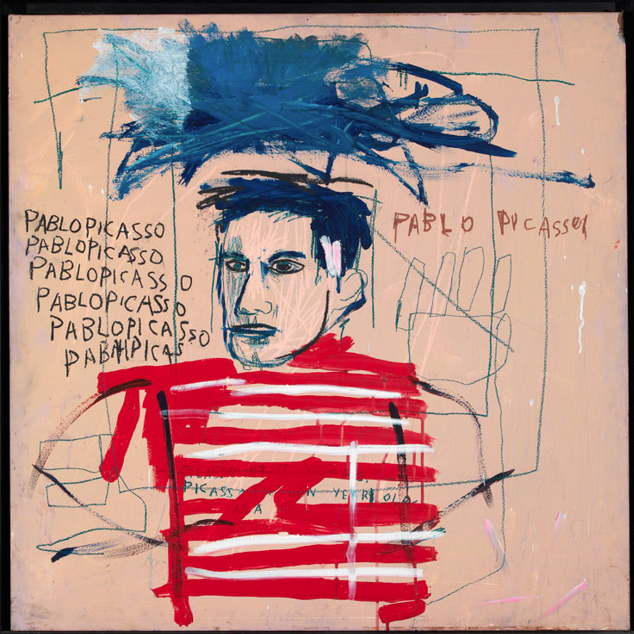 PABLO PICASSO
PABLO PICASSO
PABLO PICASSO
PABLO PICASSO
PABLO PICASSO
PABLO PICAS
PABLO PICASSO
PICASSO
YEARS OLD
A